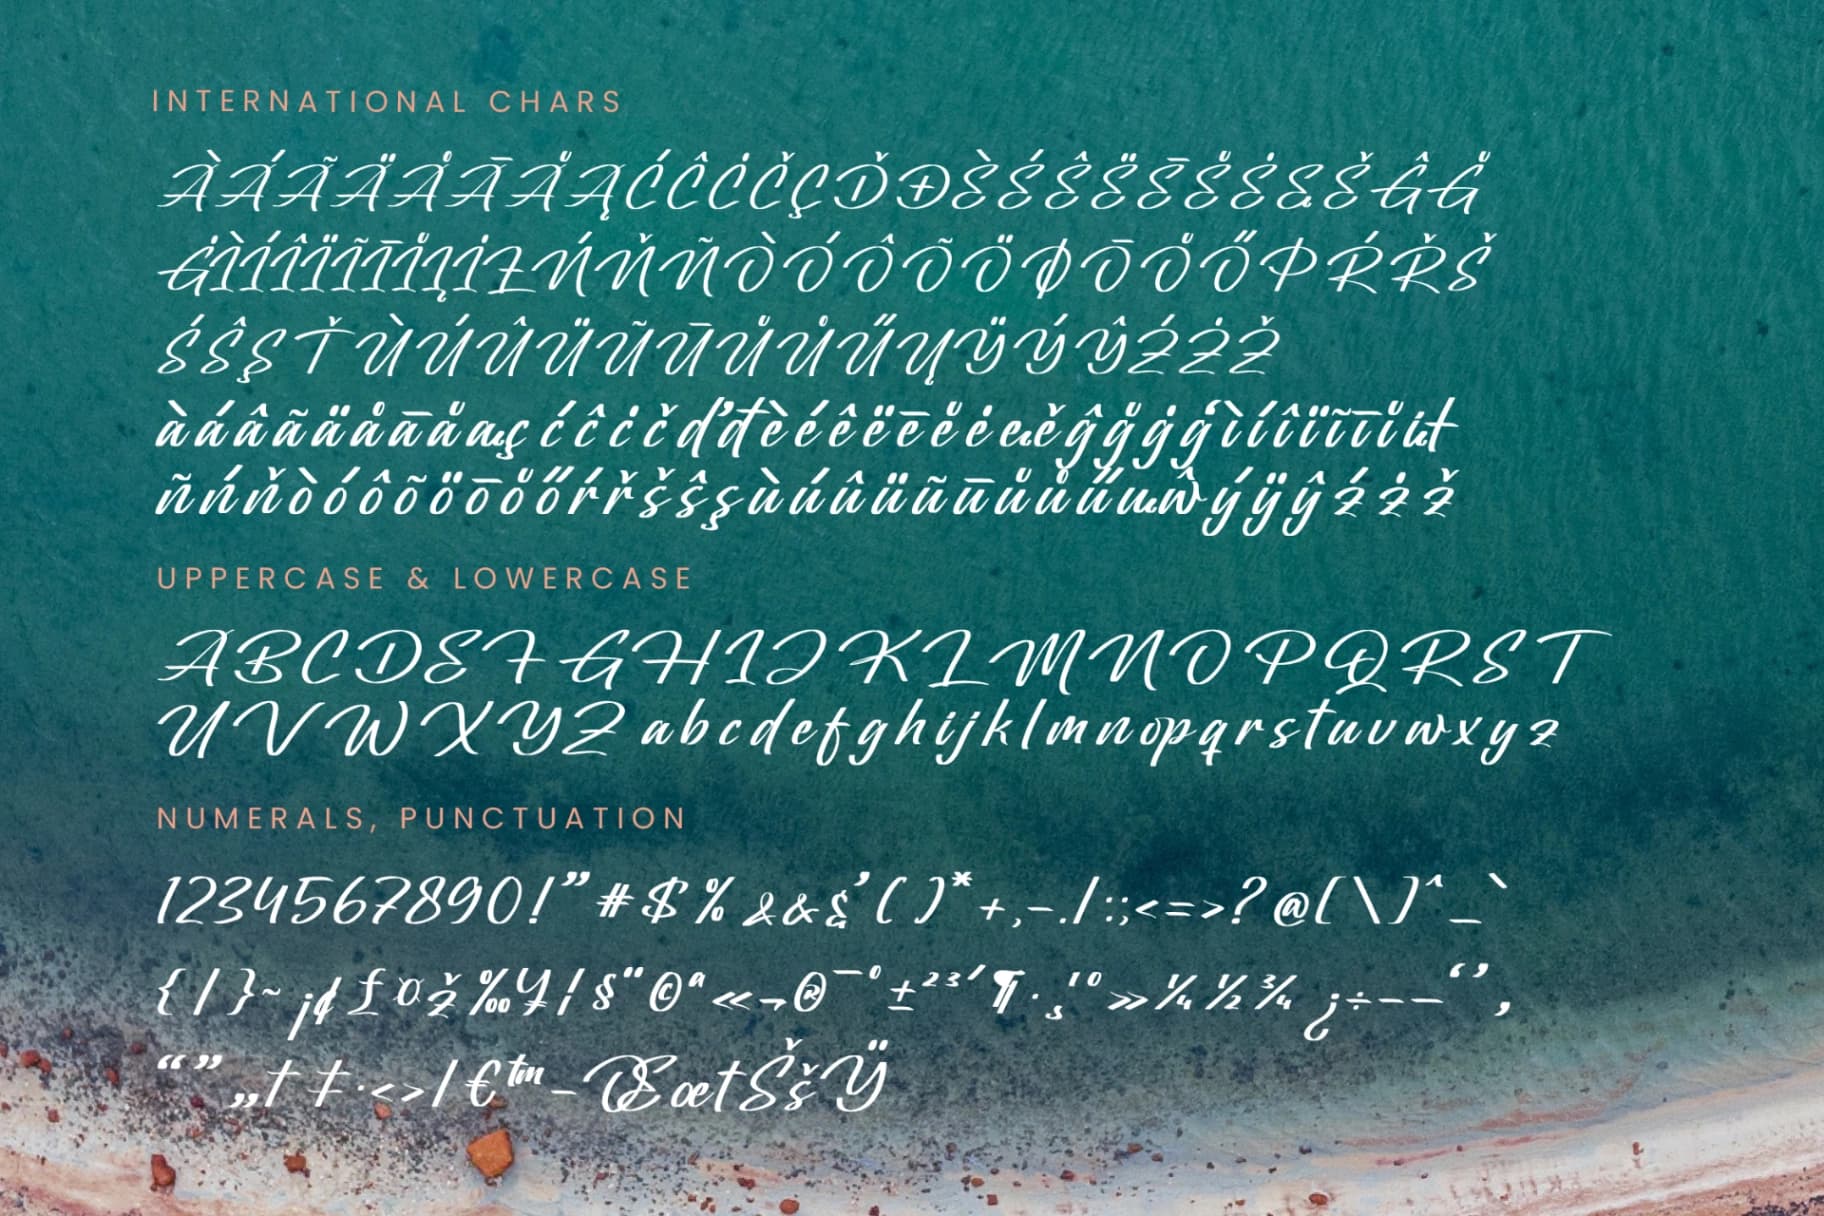 INTERNATIONAL CHARS
ÀÁÃÄÅĀÅĄĆĈĊČÇĎĐÈÉÊËĒE̊ĖĘĚĜG̊
ĠÌÍÎÏĨĪI̊ĮİŁŃŇÑÒÓÔÕÖØŌO̊ŐÞŔŘŠ
ŚŜŞŤÙÚÛÜŨŪŮU̇ŰŲŸÝŶŹŻŽ
àáâãäåāåąçćĉċčďđèéêëēe̊ėęěĝg̊ġģìíîïĩīi̊įł
ñńňòóôõöōo̊őŕřšŝşùúûüũūůůűųŵýÿŷźżž
UPPERCASE & LOWERCASE
ABCDEFGHIJKLMNOPQRST
UVWXYZ abcdefghijklmnopqrstuvwxyz
NUMERALS, PUNCTUATION
1234567890!”#$%&&&’()*+,-./:;<=>?@[\]^_`
{|}~¡¢£¤ž‰¥¦§¨©ª«¬®¯°±²³´¶·¸¹º»¼½¾¿÷––‘’,
“”„†‡·<>/€™-ŒœtŠšŸ